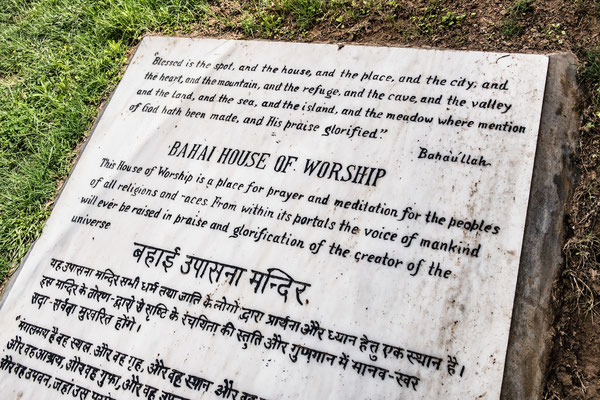 "Blessed is the spot, and the house, and the place, and the city, and
the heart, and the mountain, and the refuge, and the cave, and the valley
and the land, and the sea, and the island, and the meadow where mention
of God hath been made, and His praise glorified."
Bahá'u'llah
BAHAI HOUSE OF WORSHIP
This House of Worship is a place for prayer and meditation for the peoples
of all religions and races. From within its portals the voice of mankind
will ever be raised in praise and glorification of the creator of the
universe
बहाई उपासना मन्दिर.
यह उपासना मन्दिर सभी धर्म तथा जाति के लोगों द्वारा प्रार्थना और ध्यान हेतु एक स्थान है।
इस मन्दिर के तोरण-द्वारों से सृष्टि के रचयिता की स्तुति और गुणगान में मानव-स्वर
सदा-सर्वदा मुखरित होंगे।
"मंगलमय है वह स्थल, और वह गृह, और वह स्थान और वह
और वह आश्रय, और वह गुफा, और वह
और वह उपवन, जहाँ उस